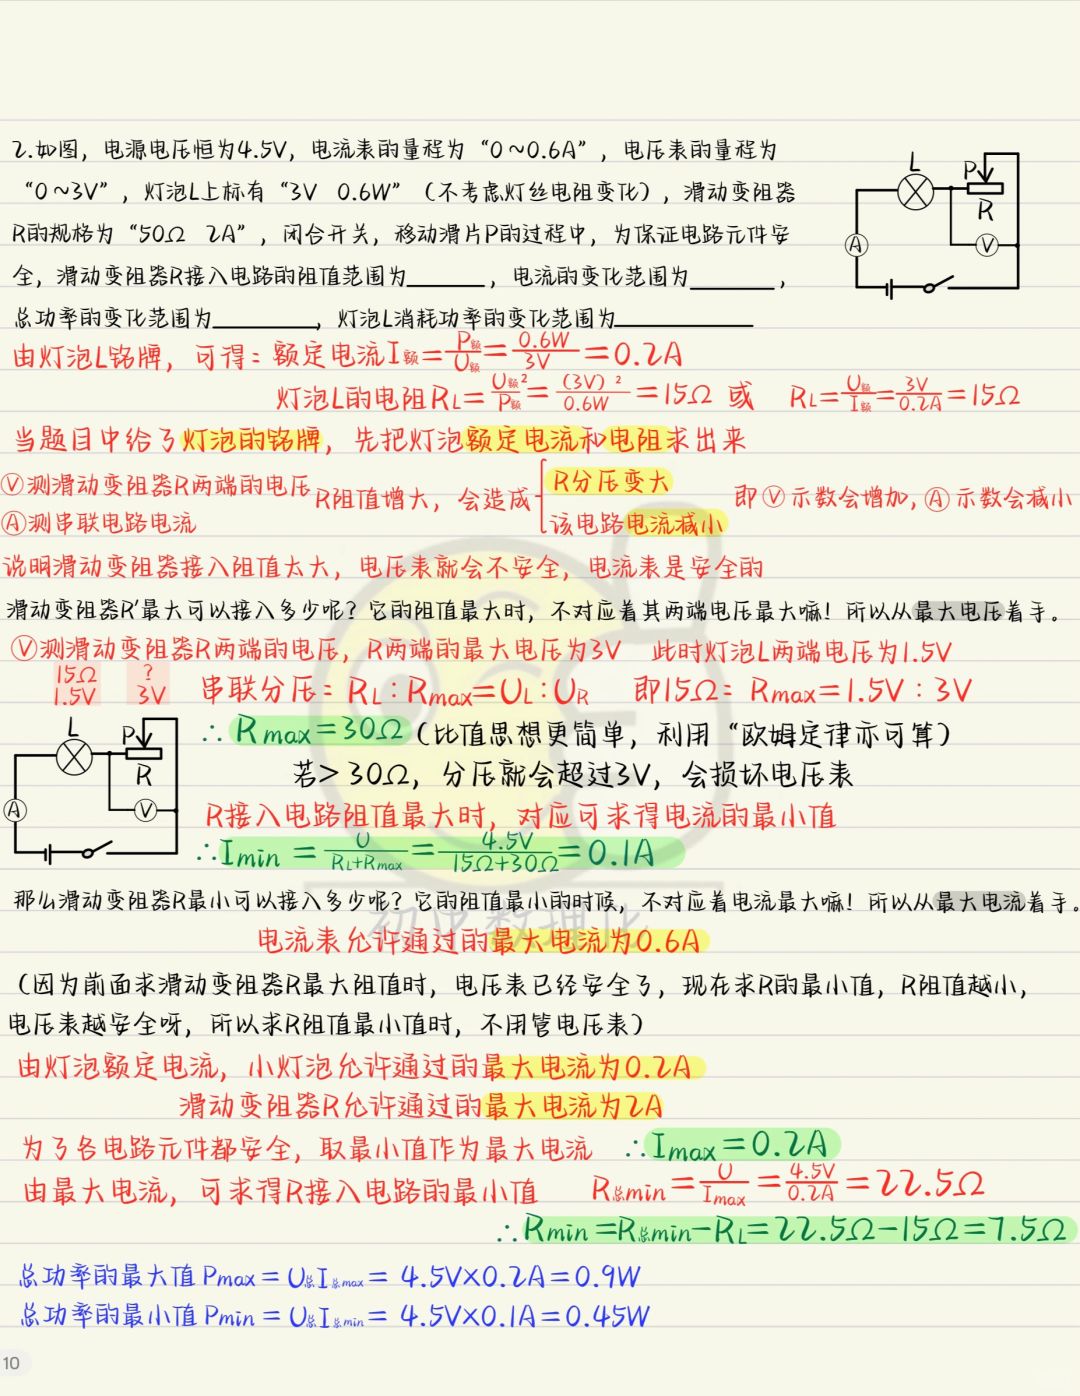 2.如图，电源电压恒为4.5V，电流表的量程为“0~0.6A”，电压表的量程为
“0~3V”，灯泡L上标有“3V 0.6W”（不考虑灯丝电阻变化），滑动变阻器
R的规格为“50Ω 2A”，闭合开关，移动滑片P的过程中，为保证电路元件安
全，滑动变阻器R接入电路的阻值范围为______，电流的变化范围为______，
总功率的变化范围为______，灯泡L消耗功率的变化范围为______
L P R A V
由灯泡L铭牌，可得：额定电流I额=P额/U额=0.6W/3V=0.2A
灯泡L的电阻RL=U额²/P额=(3V)²/0.6W=15Ω 或 RL=U额/I额=3V/0.2A=15Ω
当题目中给了灯泡的铭牌，先把灯泡额定电流和电阻求出来
Ⓥ测滑动变阻器R两端的电压
Ⓐ测串联电路电流
R阻值增大，会造成
R分压变大
该电路电流减小
即Ⓥ示数会增加，Ⓐ示数会减小
说明滑动变阻器接入阻值太大，电压表就会不安全，电流表是安全的
滑动变阻器R'最大可以接入多少呢？它的阻值最大时，不对应着其两端电压最大嘛！所以从最大电压着手。
Ⓥ测滑动变阻器R两端的电压，R两端的最大电压为3V 此时灯泡L两端电压为1.5V
15Ω ?
1.5V 3V
串联分压：RL:Rmax=UL:UR 即15Ω：Rmax=1.5V:3V
L P R A V
∴Rmax=30Ω（比值思想更简单，利用“欧姆定律亦可算）
若>30Ω，分压就会超过3V，会损坏电压表
R接入电路阻值最大时，对应可求得电流的最小值
∴Imin=U/RL+Rmax=4.5V/15Ω+30Ω=0.1A
那么滑动变阻器R最小可以接入多少呢？它的阻值最小的时候，不对应着电流最大嘛！所以从最大电流着手。
初中数理化
电流表允许通过的最大电流为0.6A
（因为前面求滑动变阻器R最大阻值时，电压表已经安全了，现在求R的最小值，R阻值越小，
电压表越安全呀，所以求R阻值最小值时，不用管电压表）
由灯泡额定电流，小灯泡允许通过的最大电流为0.2A
滑动变阻器R允许通过的最大电流为2A
为了各电路元件都安全，取最小值作为最大电流 ∴Imax=0.2A
由最大电流，可求得R接入电路的最小值 R总min=U/Imax=4.5V/0.2A=22.5Ω
∴Rmin=R总min-RL=22.5Ω-15Ω=7.5Ω
总功率的最大值Pmax=U总I总max=4.5V×0.2A=0.9W
总功率的最小值Pmin=U总I总min=4.5V×0.1A=0.45W
10